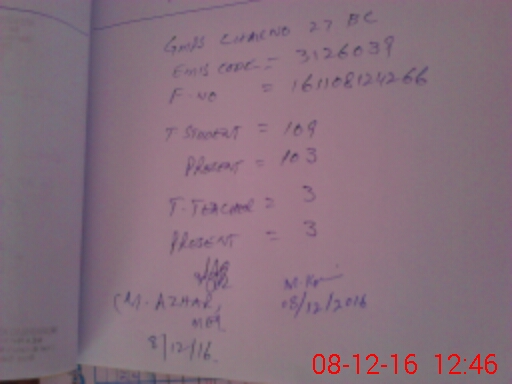 GMPS CHAK NO 27 BC
EMIS CODE = 3126039
F-NO = 161108124266
T STUDENT = 109
PRESENT = 103
T-TEACHER = 3
PRESENT = 3
(M. AZHAR,
MEA
8/12/16.
08/12/2016
08-12-16 12:46